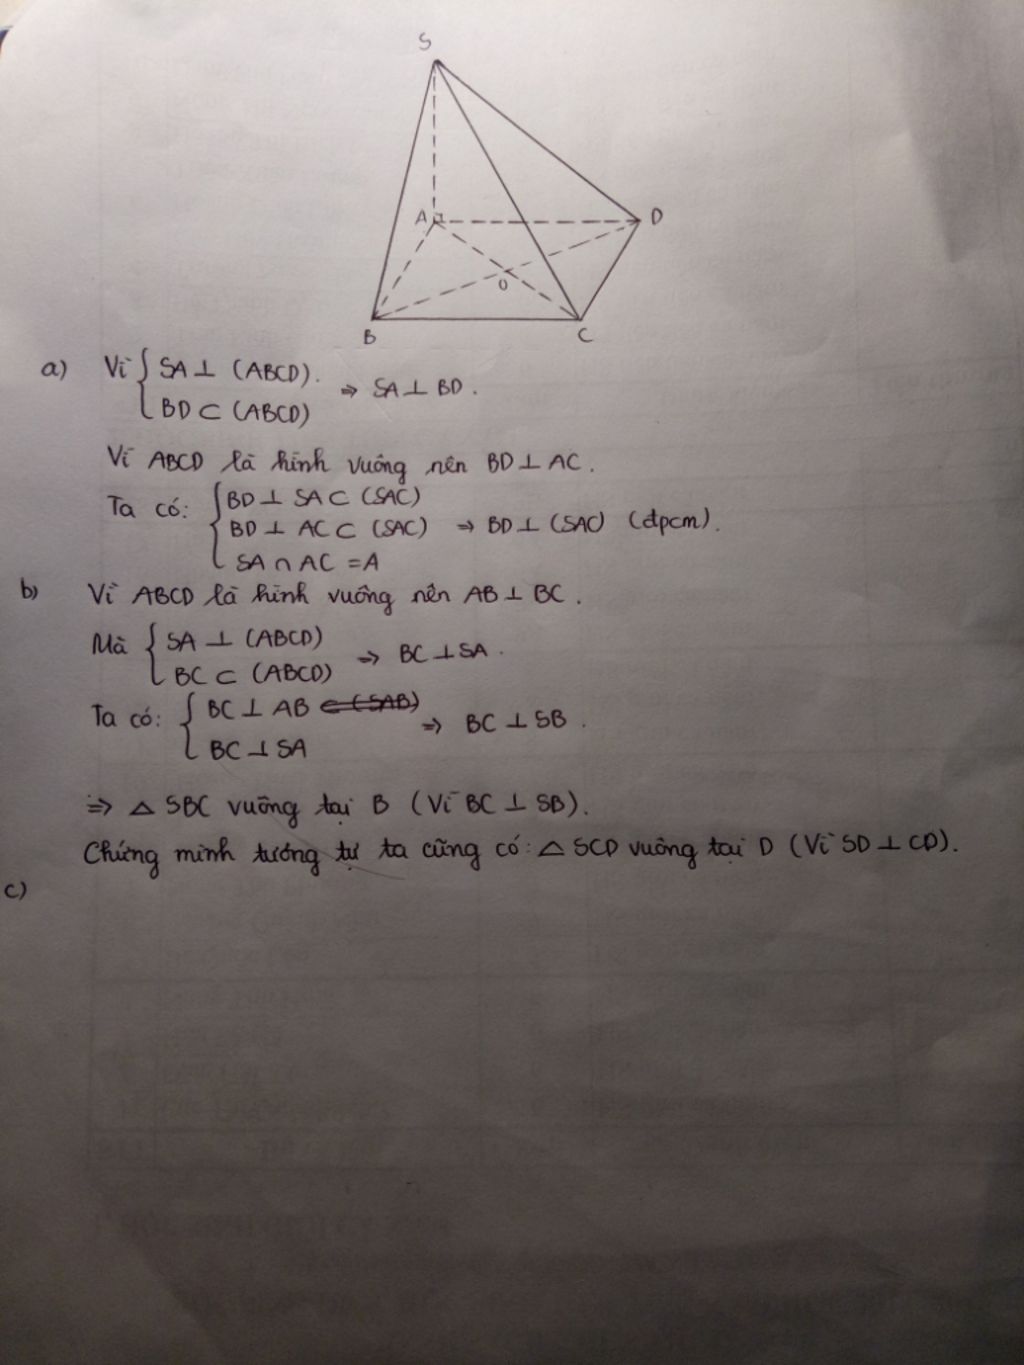 S
A
D
O
B
C
a) Vì { SA ⊥ (ABCD).
BD ⊂ (ABCD) ⇒ SA ⊥ BD.
Vì ABCD là hình vuông nên BD ⊥ AC.
Ta có: { BD ⊥ SA ⊂ (SAC)
BD ⊥ AC ⊂ (SAC) ⇒ BD ⊥ (SAC) (đpcm).
SA ∩ AC = A
b) Vì ABCD là hình vuông nên AB ⊥ BC.
Mà { SA ⊥ (ABCD)
BC ⊂ (ABCD) ⇒ BC ⊥ SA.
Ta có: { BC ⊥ AB ⊂ (SAB)
BC ⊥ SA ⇒ BC ⊥ SB.
⇒ △ SBC vuông tại B (Vì BC ⊥ SB).
Chứng minh tương tự ta cũng có: △ SCD vuông tại D (Vì SD ⊥ CD).
c)